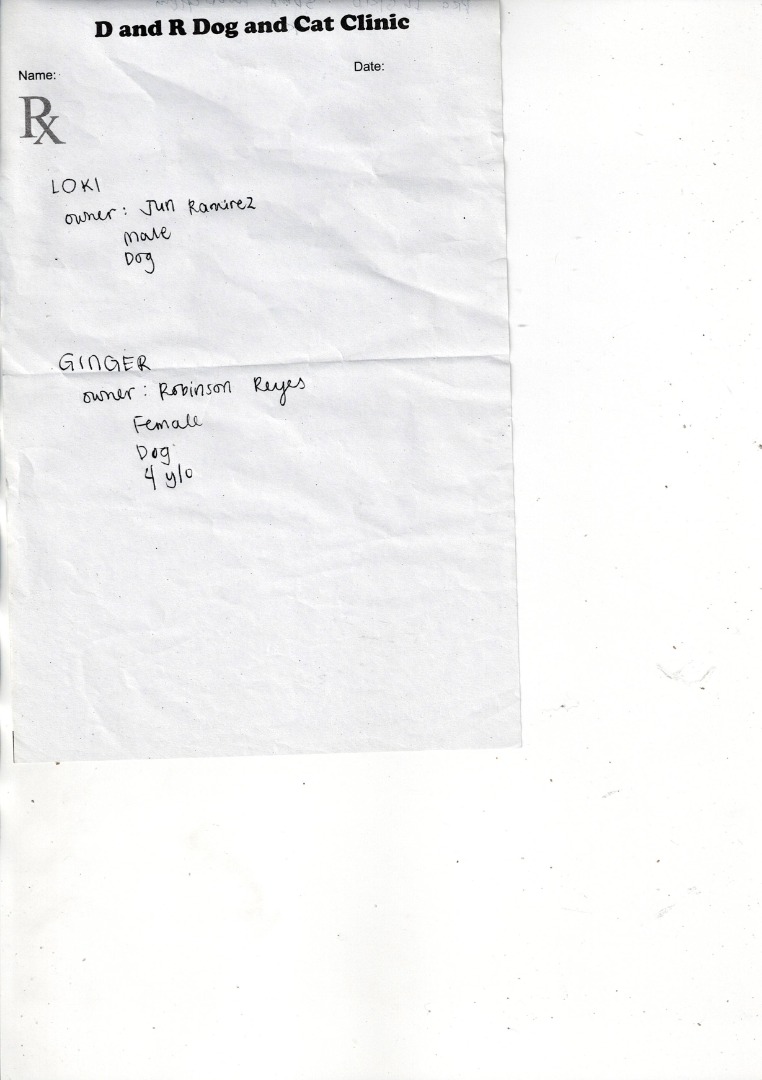 D and R Dog and Cat Clinic
Name:
Date:
Rx
LOKI
owner: Jun Ramirez
male
Dog
GINGER
owner: Robinson Reyes
Female
Dog
4 y/o